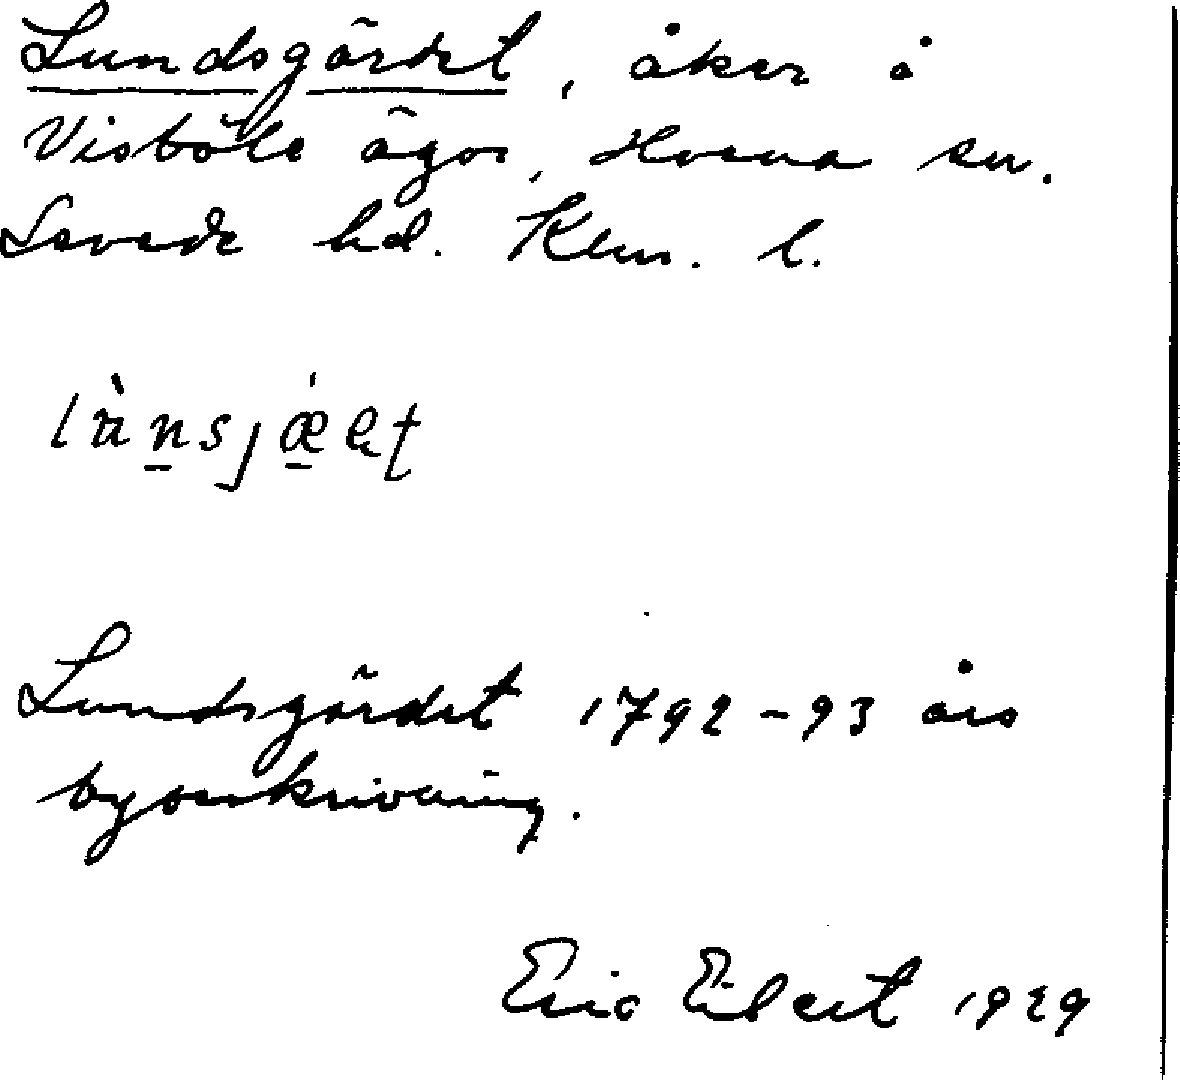 Lundsgärdet, åker å
Visböle ägor, Horna sn.
Sevede hd. Klm. l.
Lundsgärdet 1792-93 års
byomskrivning.
Eric Elbert 1929